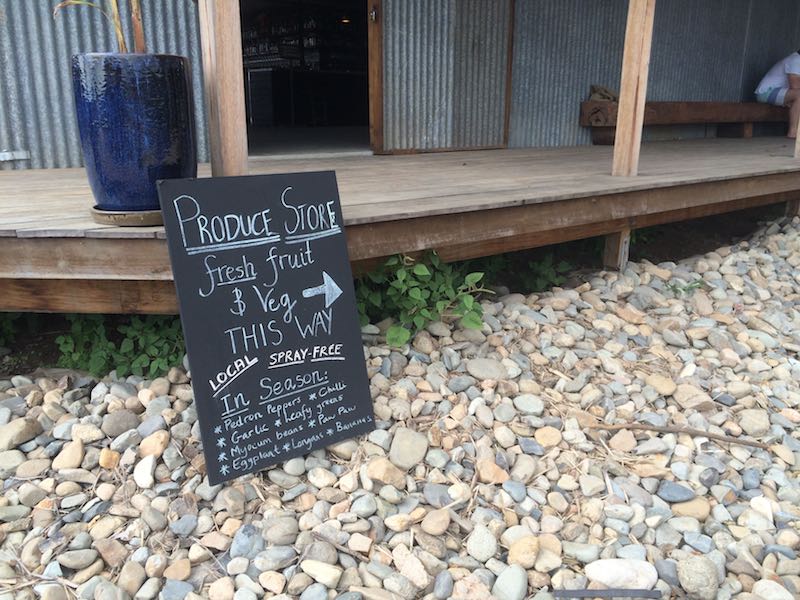 PRODUCE STORE
fresh fruit
& Veg →
THIS WAY
LOCAL SPRAY-FREE
In Season:
* Pedron Peppers * Chilli
* Garlic * Leafy greens
* Myocum beans * Paw Paw
* Eggplant * Longans * Bananas